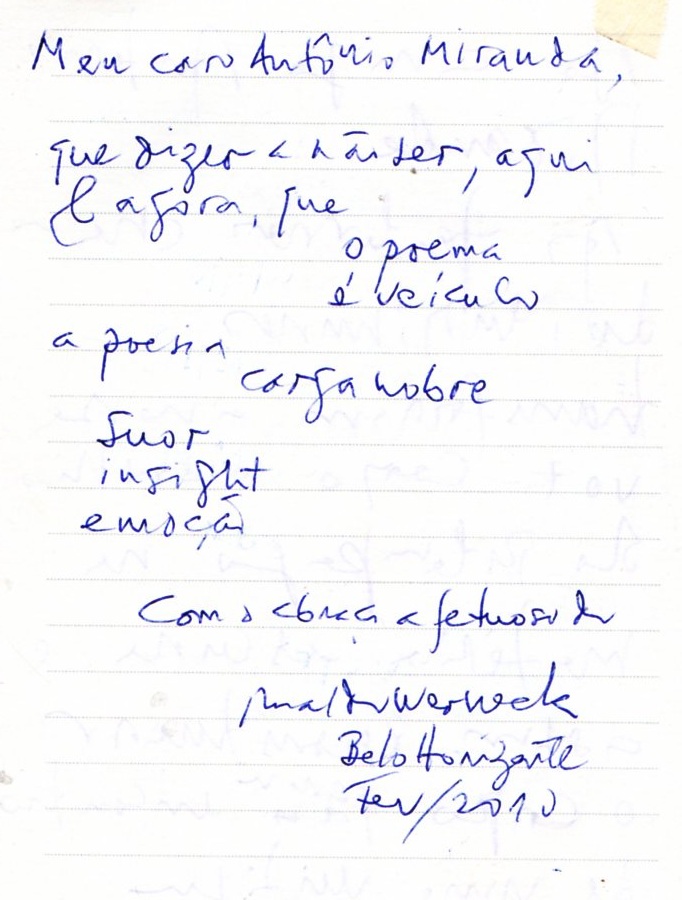 Meu caro Antônio Miranda,
que dizer a não ser, aqui
e agora, que
o poema
é veículo
a poesia
carga nobre
suor
insight
emoção
Com o abraço afetuoso do
Werneck
Belo Horizonte
Fev/2010